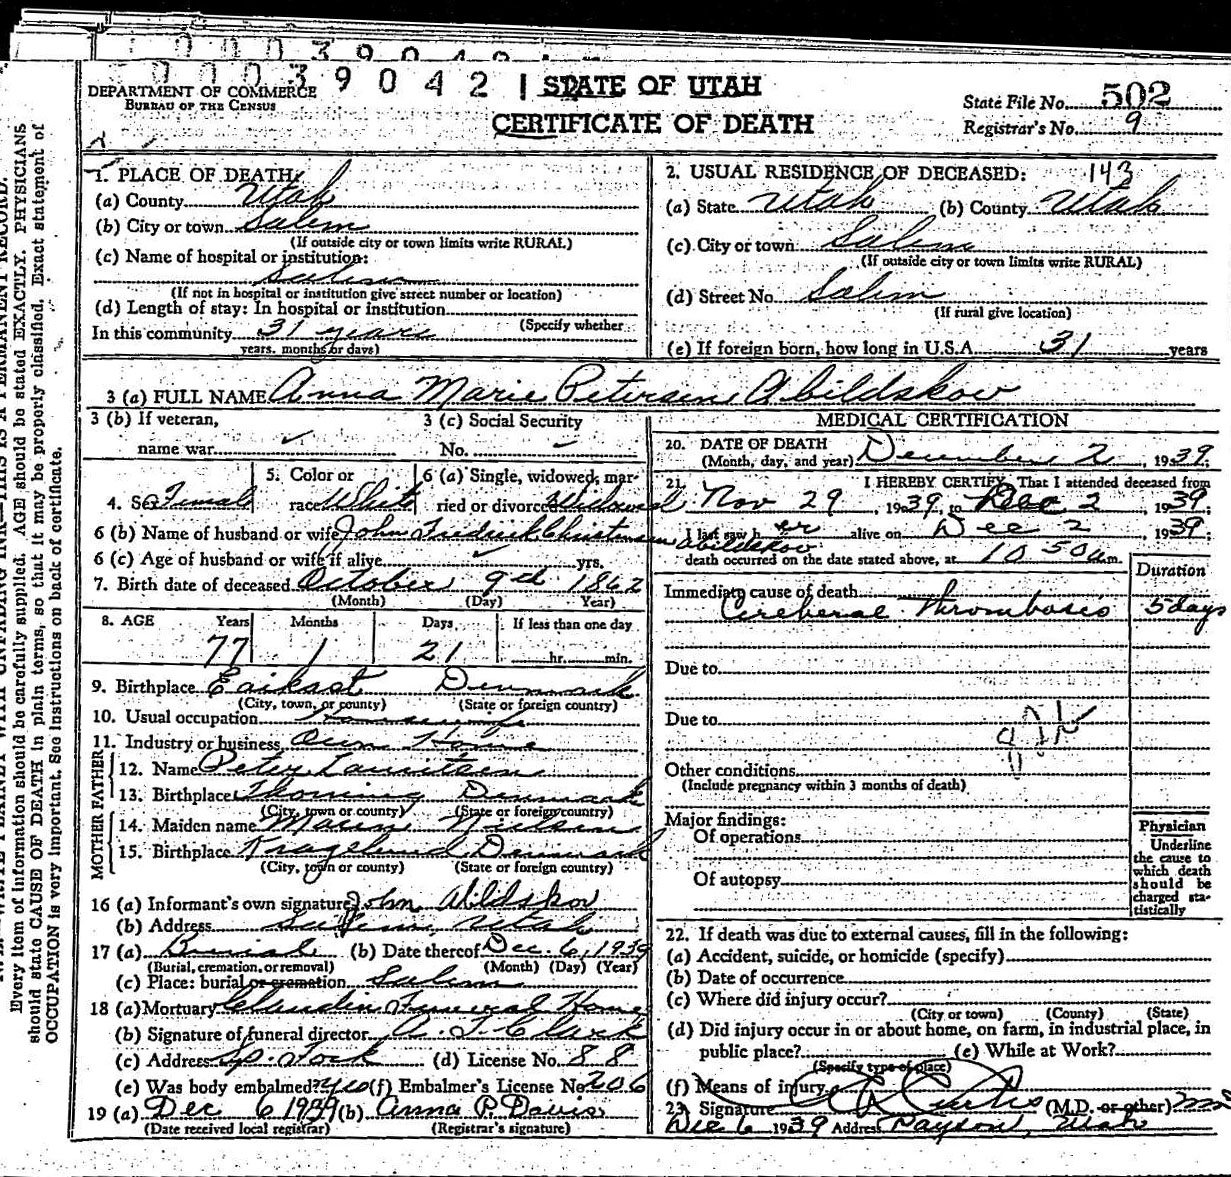 0 0 0 3 9 0 4 2
STATE OF UTAH
DEPARTMENT OF COMMERCE
BUREAU OF THE CENSUS
CERTIFICATE OF DEATH
State File No. 502
Registrar's No. 9
1. PLACE OF DEATH:
(a) County Utah
(b) City or town Salem
(If outside city or town limits write RURAL)
(c) Name of hospital or institution:
Salem
(If not in hospital or institution give street number or location)
(d) Length of stay: In hospital or institution
(Specify whether
In this community 31 years
years, months or days)
2. USUAL RESIDENCE OF DECEASED: 143
(a) State Utah (b) County Utah
(c) City or town Salem
(If outside city or town limits write RURAL)
(d) Street No. Salem
(If rural give location)
(e) If foreign born, how long in U.S.A. 31 years
3 (a) FULL NAME Anna Marie Petersen Abildskow
3 (b) If veteran,
name war
3 (c) Social Security
No.
4. Sex Female
5. Color or
race White
6 (a) Single, widowed, mar-
ried or divorced Widowed
6 (b) Name of husband or wife John Fredrick Christensen Abildskow
6 (c) Age of husband or wife if alive yrs.
7. Birth date of deceased October 9d 1862
(Month) (Day) Year)
8. AGE Years Months Days If less than one day
77 1 21 hr. min.
9. Birthplace Denmark
(City, town, or county) (State or foreign country)
10. Usual occupation Housewife
11. Industry or business Own Home
FATHER
12. Name Peter Lauritsen
13. Birthplace Thorning Denmark
(City, town or county) (State or foreign country)
MOTHER
14. Maiden name Maren Nielsen
15. Birthplace Kragelund Denmark
(City, town or county) (State or foreign country)
16 (a) Informant's own signature John Abildskov
(b) Address Salem, Utah
17 (a) Burial (b) Date thereof Dec. 6, 1939
(Burial, cremation, or removal) (Month) (Day) (Year)
(c) Place: burial or cremation Salem
18 (a) Mortuary Claudin Funeral Home
(b) Signature of funeral director
(c) Address Sp. Fork (d) License No. 88
(e) Was body embalmed? Yes (f) Embalmer's License No. 206
19 (a) Dec 6 1939 (b) Anna P. Davis
(Date received local registrar) (Registrar's signature)
MEDICAL CERTIFICATION
20. DATE OF DEATH
(Month, day, and year) December 2, 1939.
21. I HEREBY CERTIFY, That I attended deceased from
Nov 29, 1939, to Dec 2, 1939.
I last saw her alive on Dec 2, 1939.
death occurred on the date stated above, at 10 50 a m.
Duration
Immediate cause of death
Cereberal Thrombosis 5 days
Due to
Due to
Other conditions
(Include pregnancy within 3 months of death)
Major findings:
Of operations
Of autopsy
Physician
Underline
the cause to
which death
should be
charged sta-
tistically
22. If death was due to external causes, fill in the following:
(a) Accident, suicide, or homicide (specify)
(b) Date of occurrence
(c) Where did injury occur?
(City or town) (County) (State)
(d) Did injury occur in or about home, on farm, in industrial place, in
public place? (e) While at Work?
(Specify type of place)
(f) Means of injury
23. Signature Curtis (M.D. or other) MD
Dec 6 1939 Address Payson, Utah
Every item of information should be carefully supplied. AGE should be stated EXACTLY. PHYSICIANS
should state CAUSE OF DEATH in plain terms, so that it may be properly classified. Exact statement of
OCCUPATION is very important. See instructions on back of certificate.